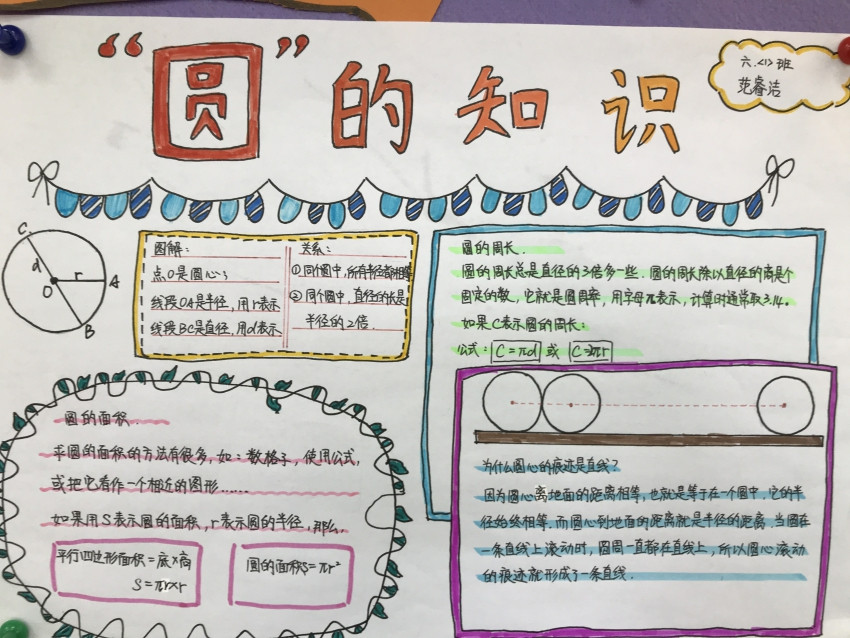 “圆”的知识
六.<1>班
范睿洁
C
d
O
r
A
B
图解：
点O是圆心；
线段OA是半径，用r表示
线段BC是直径，用d表示
关系：
①同个圆中，所有半径都相等
②同个圆中，直径的长是
半径的2倍.
圆的周长.
圆的周长总是直径的3倍多一些.圆的周长除以直径的商是个
固定的数，它就是圆周率，用字母π表示，计算时通常取3.14.
如果C表示圆的周长：
公式：C=πd 或 C=2πr
圆的面积...
求圆的面积的方法有很多，如：数格子，使用公式，
或把它看作一个相近的图形……
如果用S表示圆的面积，r表示圆的半径，那么.
平行四边形面积=底×高
S=πr×r
圆的面积S=πr²
为什么圆心的痕迹是直线？
因为圆心离地面的距离相等，也就是等于在一个圆中，它的半
径始终相等.而圆心到地面的距离就是半径的距离，当圆在
一条直线上滚动时，圆周一直都在直线上，所以圆心滚动
的痕迹就形成了一条直线.